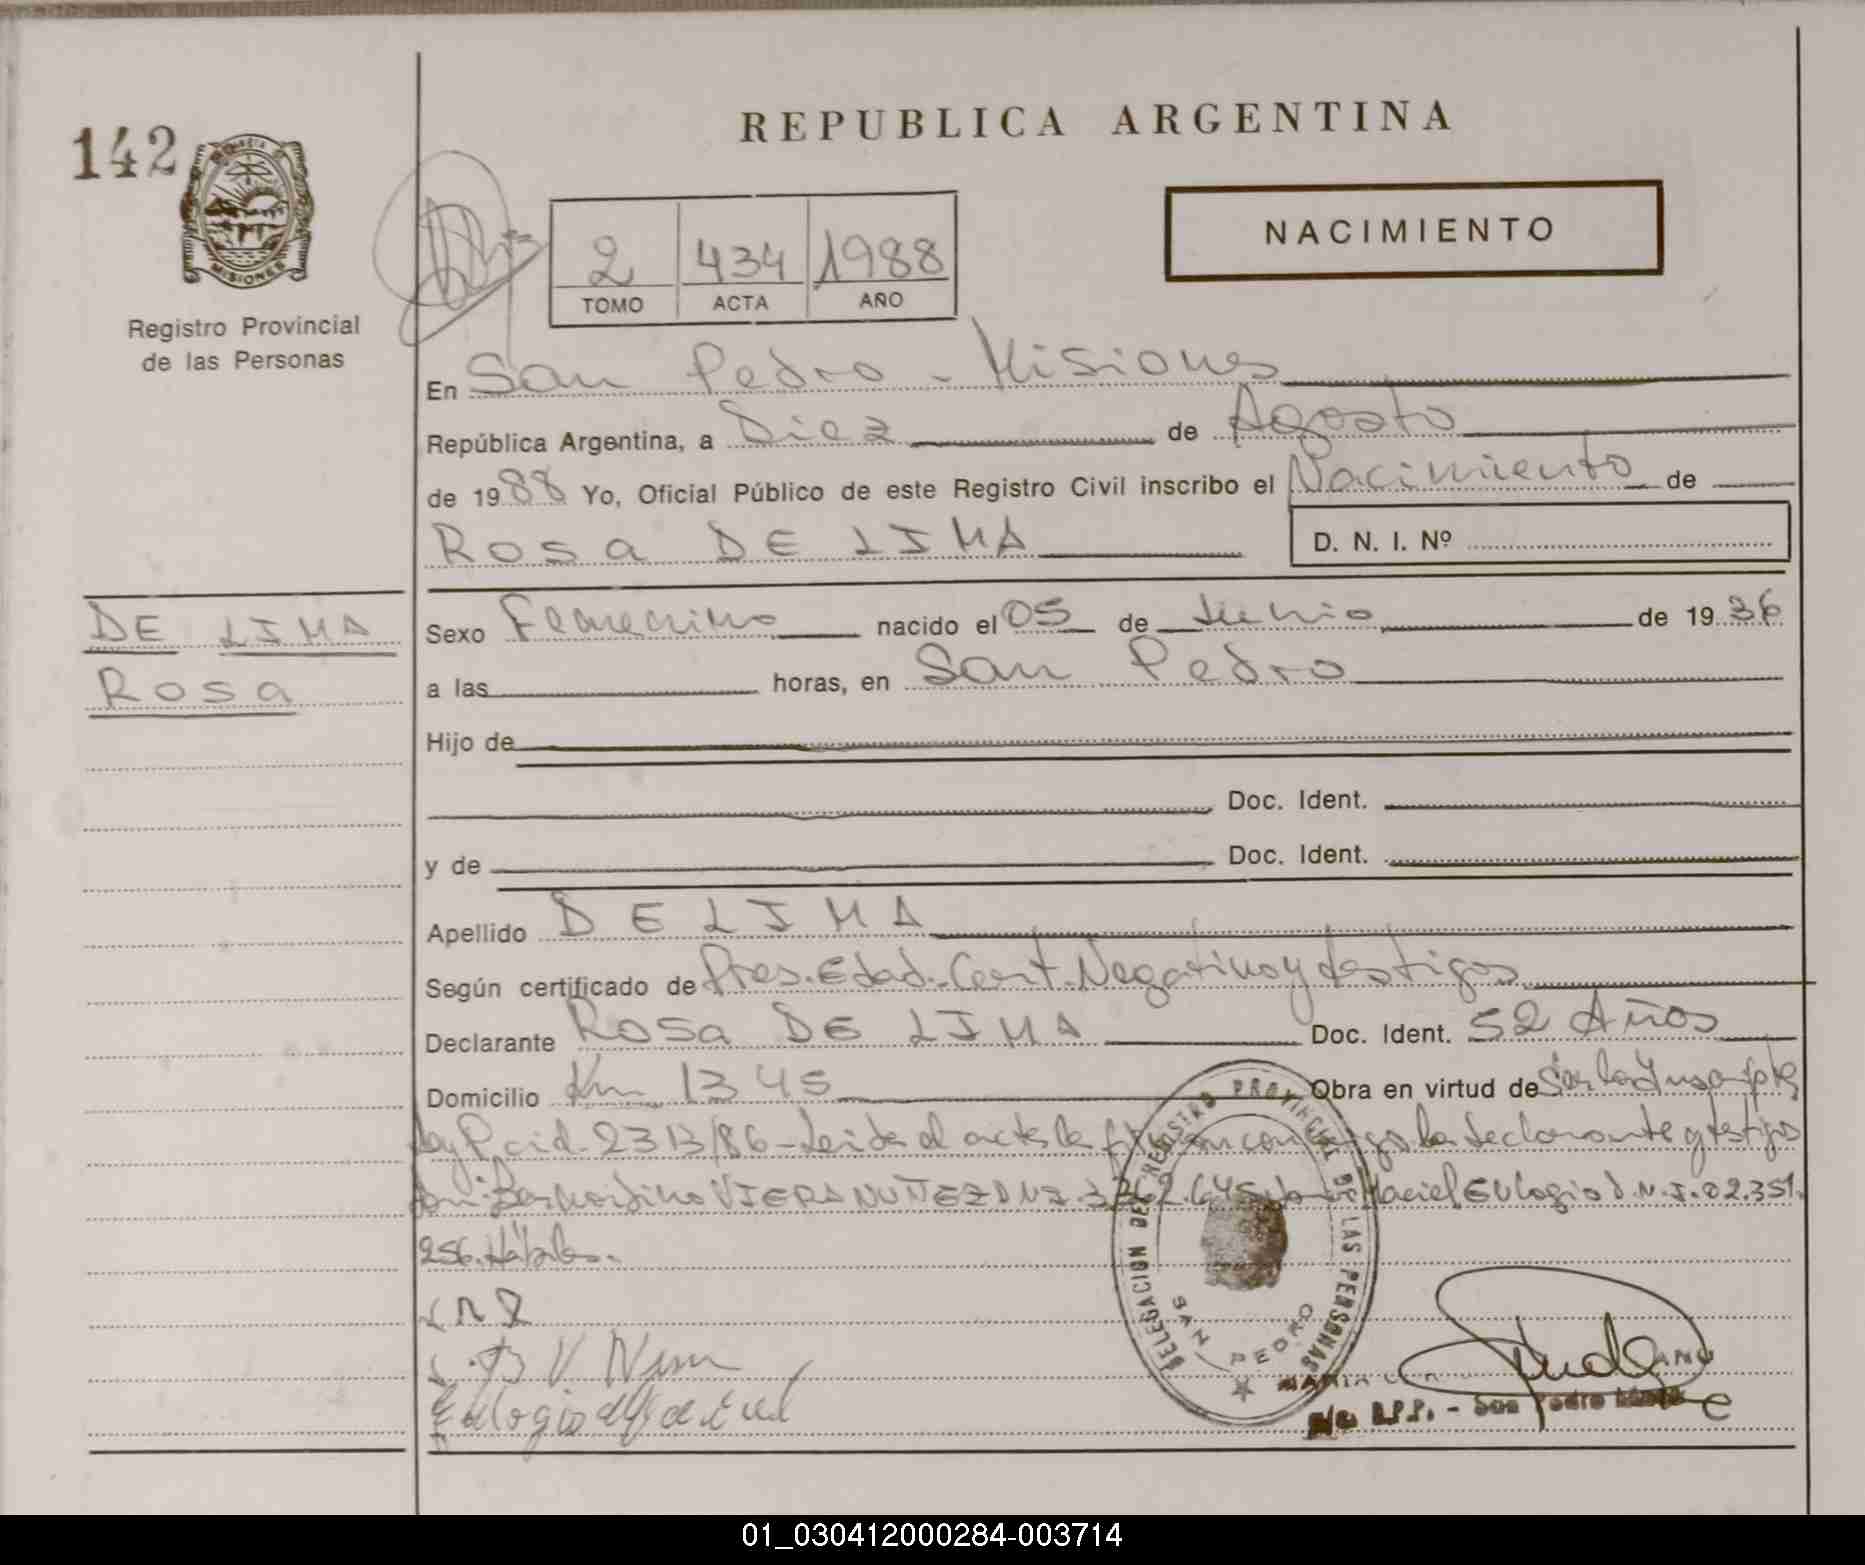 142
REPUBLICA ARGENTINA
NACIMIENTO
MISIONES
Registro Provincial
de las Personas
2 434 1988
TOMO ACTA AÑO
En San Pedro - Misiones
República Argentina, a Diez de Agosto
de 1988 Yo, Oficial Público de este Registro Civil inscribo el Nacimiento de
Rosa DE LIMA
D. N. I. Nº
DE LIMA
Rosa
Sexo Femenino nacido el 05 de Junio de 1936
a las horas, en San Pedro
Hijo de
Doc. Ident.
y de Doc. Ident.
Apellido DE LIMA
Según certificado de Pres. Edad. Cert. Negativo y testigos
Declarante Rosa DE LIMA Doc. Ident. 52 Años
Domicilio Km 1345 Obra en virtud de
Ley Pcial. 2313/86 - Leida el acta la firman conmigo la declarante y testigos
VIERA NUÑEZ Maciel Eulogio D.N.I. 02.351.
256. Hábiles.
DELEGACION DEL REGISTRO PROVINCIAL DE LAS PERSONAS
SAN PEDRO
MARIA
R.P.P. - San Pedro
Eulogio
01_030412000284-003714